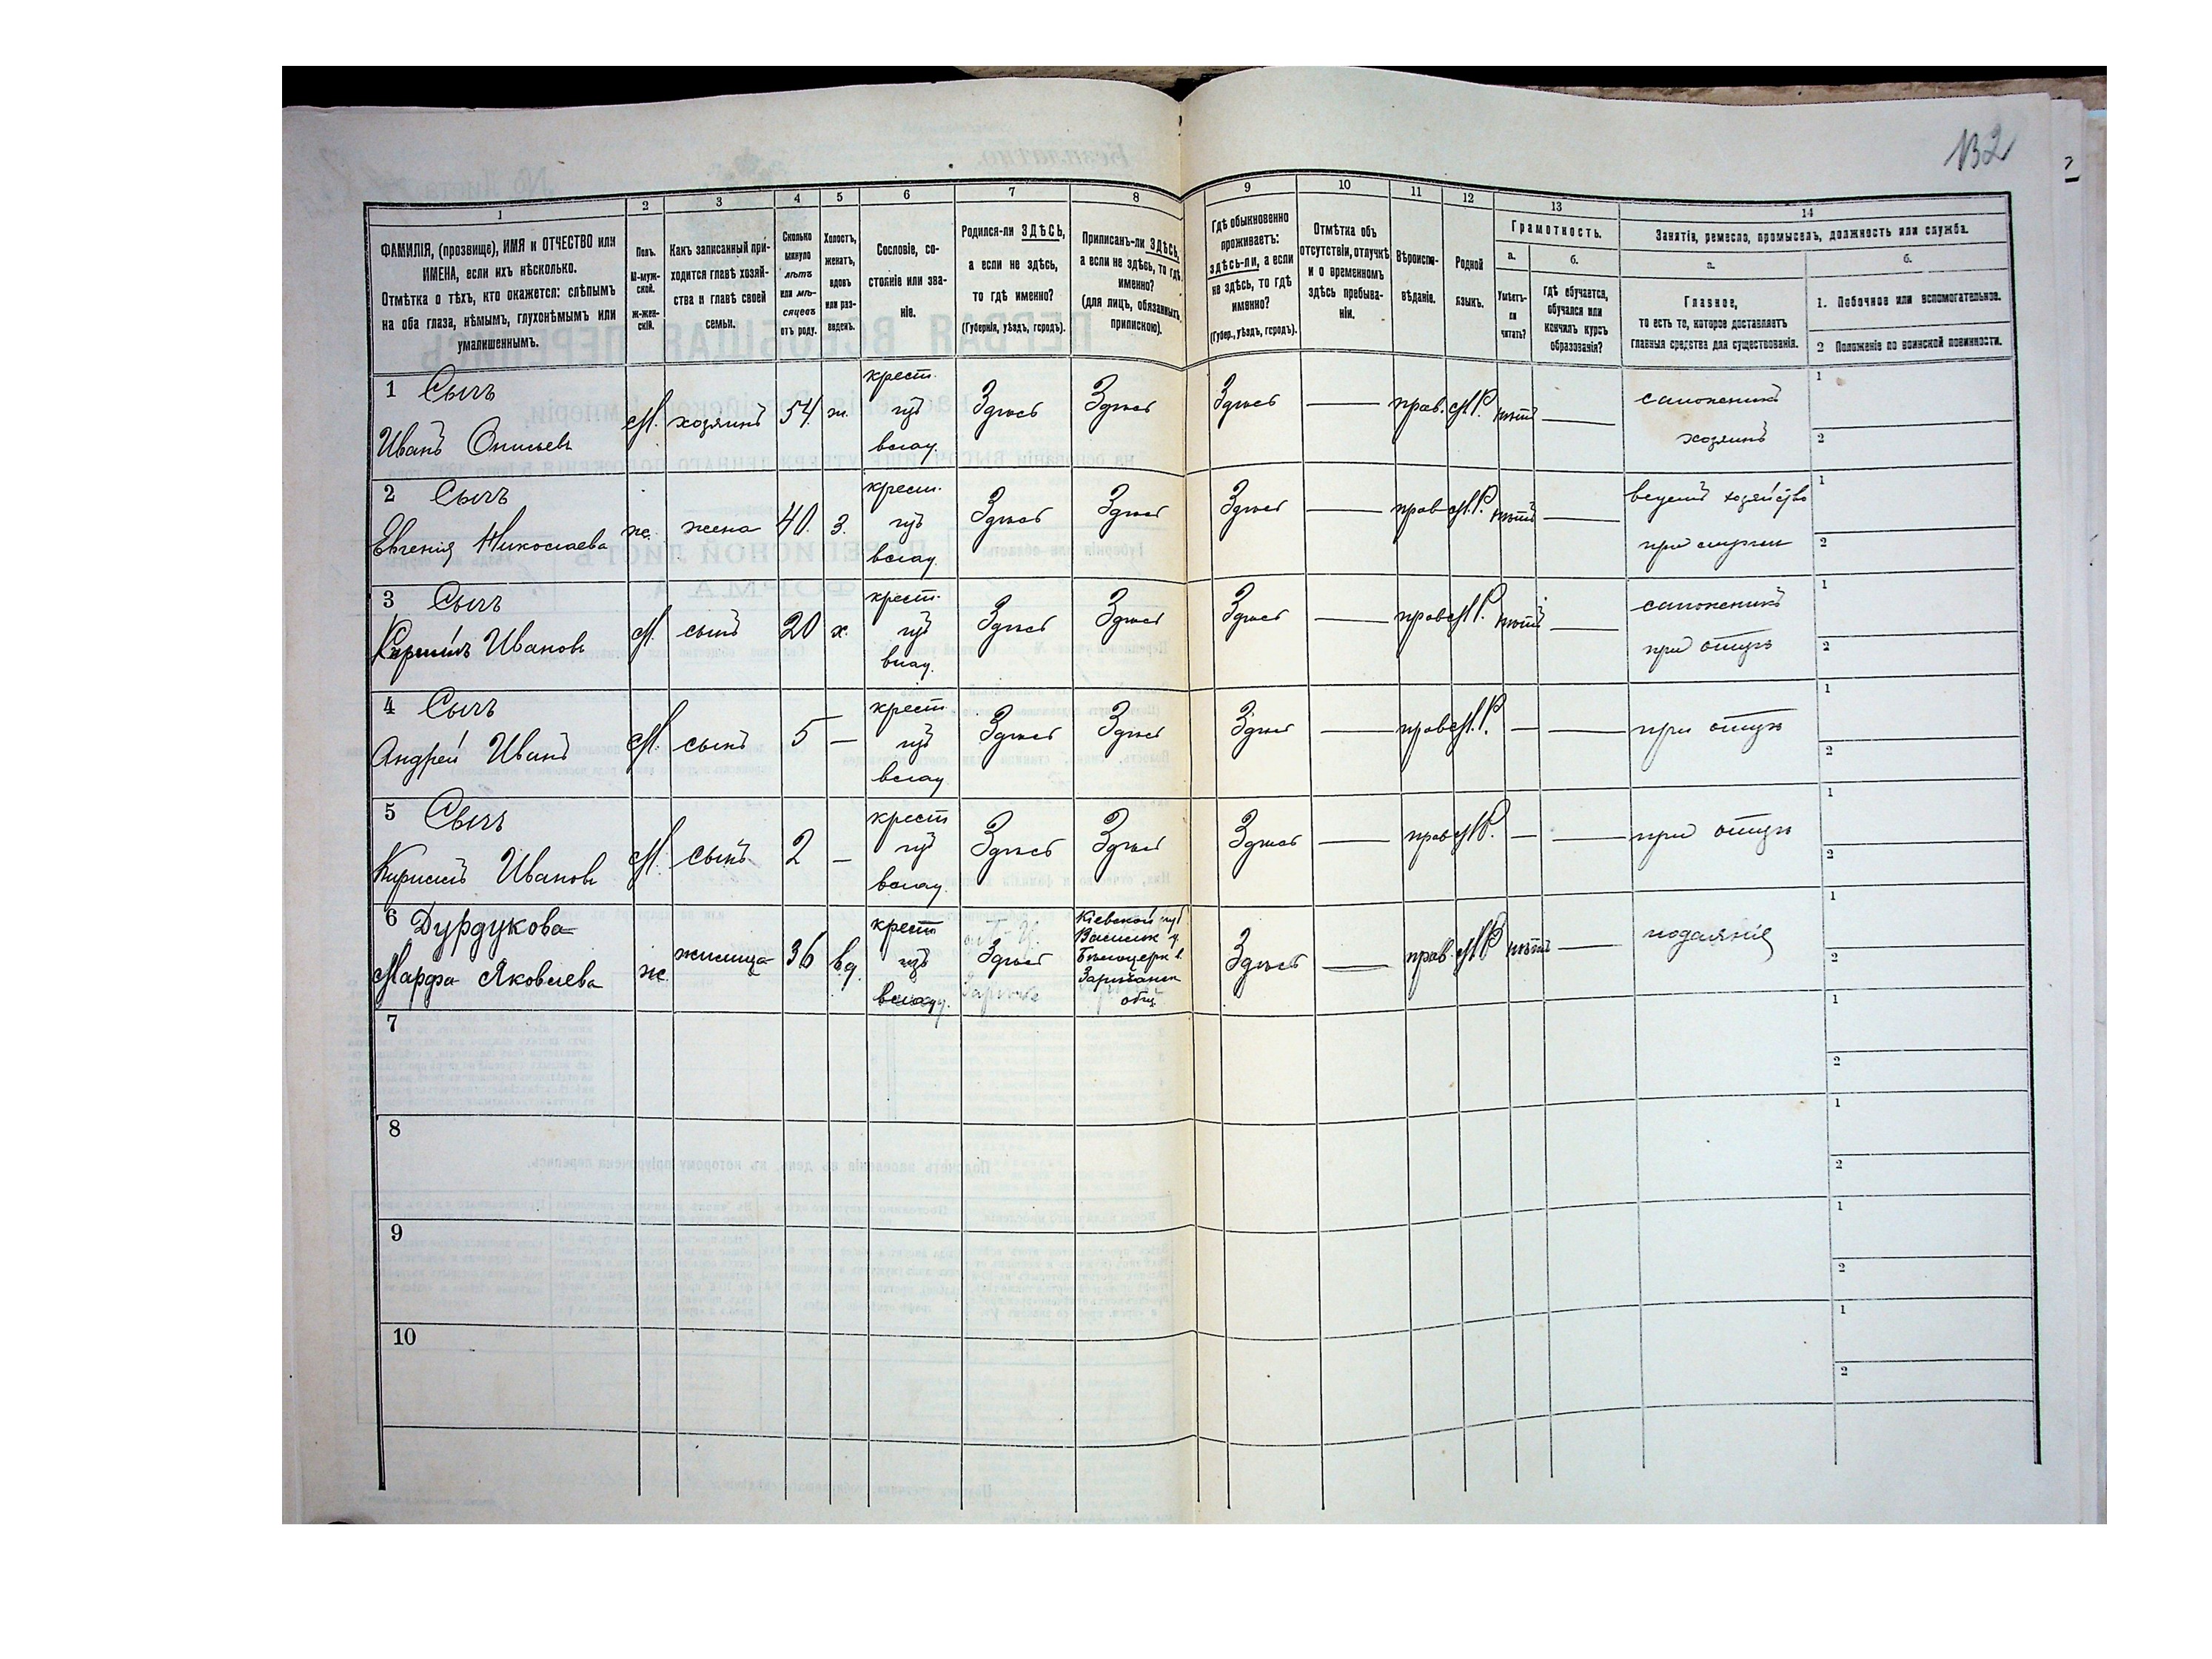 132
1 2 3 4 5 6 7 8 9 10 11 12 13 14
ФАМИЛІЯ, (прозвище), ИМЯ и ОТЧЕСТВО или
ИМЕНА, если ихъ нѣсколько.
Отмѣтка о тѣхъ, кто окажется: слѣпымъ
на оба глаза, нѣмымъ, глухонѣмымъ или
умалишеннымъ.
Полъ.
М-муж-
ской.
Ж-жен-
скій.
Какъ записанный при-
ходится главѣ хозяй-
ства и главѣ своей
семьи.
Сколько
минуло
лѣтъ
или мѣ-
сяцевъ
отъ роду.
Холостъ,
женатъ,
вдовъ
или раз-
веденъ.
Сословіе, со-
стояніе или зва-
ніе.
Родился-ли ЗДѢСЬ,
а если не здѣсь,
то гдѣ именно?
(Губернія, уѣздъ, городъ).
Приписанъ-ли ЗДѢСЬ,
а если не здѣсь, то гдѣ
именно?
(для лицъ, обязанныхъ
припискою).
Гдѣ обыкновенно
проживаетъ:
здѣсь-ли, а если
не здѣсь, то гдѣ
именно?
(Губер., уѣздъ, городъ).
Отмѣтка объ
отсутствіи, отлучкѣ
и о временномъ
здѣсь пребыва-
ніи.
Вѣроиспо-
вѣданіе.
Родной
языкъ.
Грамотность.
а.
Умѣетъ-
ли
читать?
б.
Гдѣ обучается,
обучался или
кончилъ курсъ
образованія?
Занятіе, ремесло, промыселъ, должность или служба.
а.
Главное,
то есть то, которое доставляетъ
главныя средства для существованія.
б.
1. Побочное или вспомогательное.
2 Положеніе по воинской повинности.
1 Сычъ
Иванъ
М. хозяинъ 54 ж.
крест.
Здѣсь Здѣсь Здѣсь — прав. М.Р. нѣтъ —
хозяинъ
1
2
2 Сычъ
Евгенія Николаева
ж. жена 40. З.
крест.
Здѣсь Здѣсь Здѣсь — прав М.Р. нѣтъ —
хозяйство
при
1
2
3 Сычъ
Иванов
М. сынъ 20 х.
крест.
Здѣсь Здѣсь Здѣсь — прав М.Р. нѣтъ —
при отцѣ
1
2
4 Сычъ
Андрей Иванъ
М. сынъ 5 —
крест
Здѣсь Здѣсь Здѣсь — прав М.Р. — —
при отцѣ
1
2
5 Сычъ
Кирилъ Иванов
М. сынъ 2 —
крест
Здѣсь Здѣсь Здѣсь — прав М.Р. — —
при отцѣ
1
2
6 Дурдукова
Марфа Яковлева
ж. жилица 36 вд.
крест
Здѣсь
Кіевской губ
Василк у.
Бѣлоцерк в.
общ.
Здѣсь — прав. М.Р нѣтъ —
подаянія
1
2
7
1
2
8
1
2
9
1
2
10
1
2